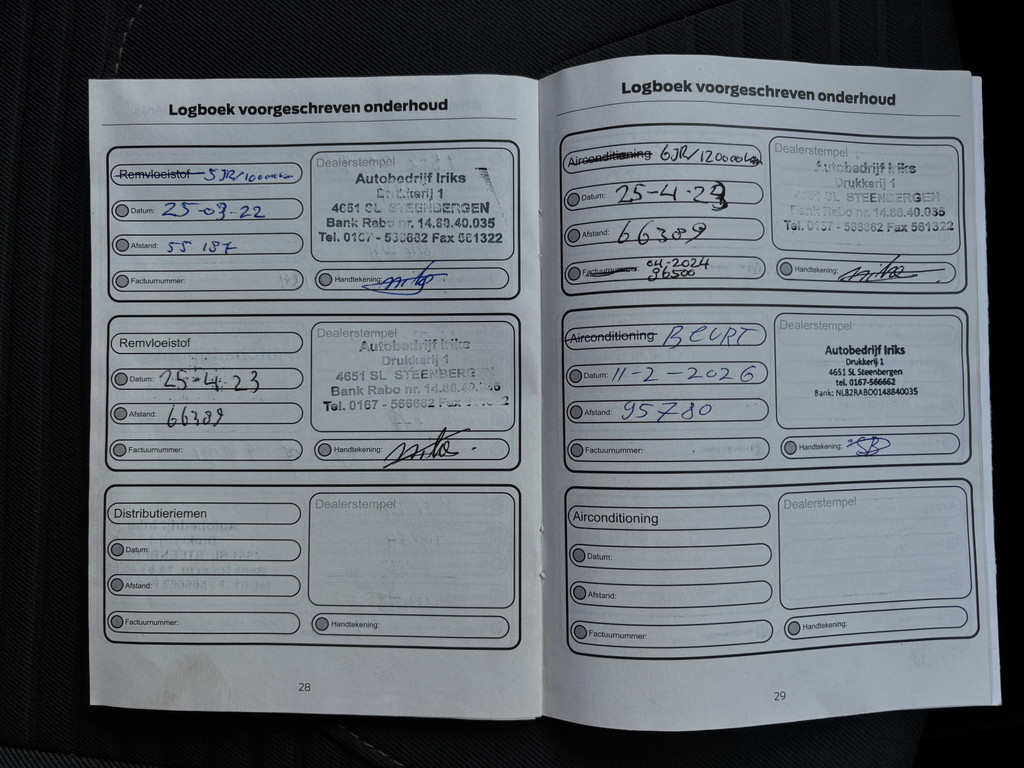 Logboek voorgeschreven onderhoud
Remvloeistof 5JR/100000km
Datum: 25-03-22
Afstand: 55 187
Factuurnummer:
Dealerstempel
Autobedrijf Iriks
Drukkerij 1
4651 SL STEENBERGEN
Bank Rabo nr. 14.88.40.035
Tel. 0167 - 566662 Fax 561322
Handtekening:
Remvloeistof
Datum: 25-4-23
Afstand: 66389
Factuurnummer:
Dealerstempel
Autobedrijf Iriks
Drukkerij 1
4651 SL STEENBERG
Bank Rabo nr. 14.88.40.
Tel. 0167 - 566662 Fax
Handtekening:
Distributieriemen
Datum:
Afstand:
Factuurnummer:
Dealerstempel
Handtekening:
28
Logboek voorgeschreven onderhoud
Airconditioning 6JR/120000km
Datum: 25-4-23
Afstand: 66389
Factuurnummer: 04-2024
96500
Dealerstempel
Autobedrijf Iriks
Drukkerij 1
4651 SL STEENBERGEN
Bank Rabo nr. 14.88.40.035
Tel. 0167 - 566662 Fax 561322
Handtekening:
Airconditioning BEURT
Datum: 11-2-2026
Afstand: 95780
Factuurnummer:
Dealerstempel
Autobedrijf Iriks
Drukkerij 1
4651 SL Steenbergen
tel. 0167-566662
Bank: NL82RABO0148840035
Handtekening: SB
Airconditioning
Datum:
Afstand:
Factuurnummer:
Dealerstempel
Handtekening:
29